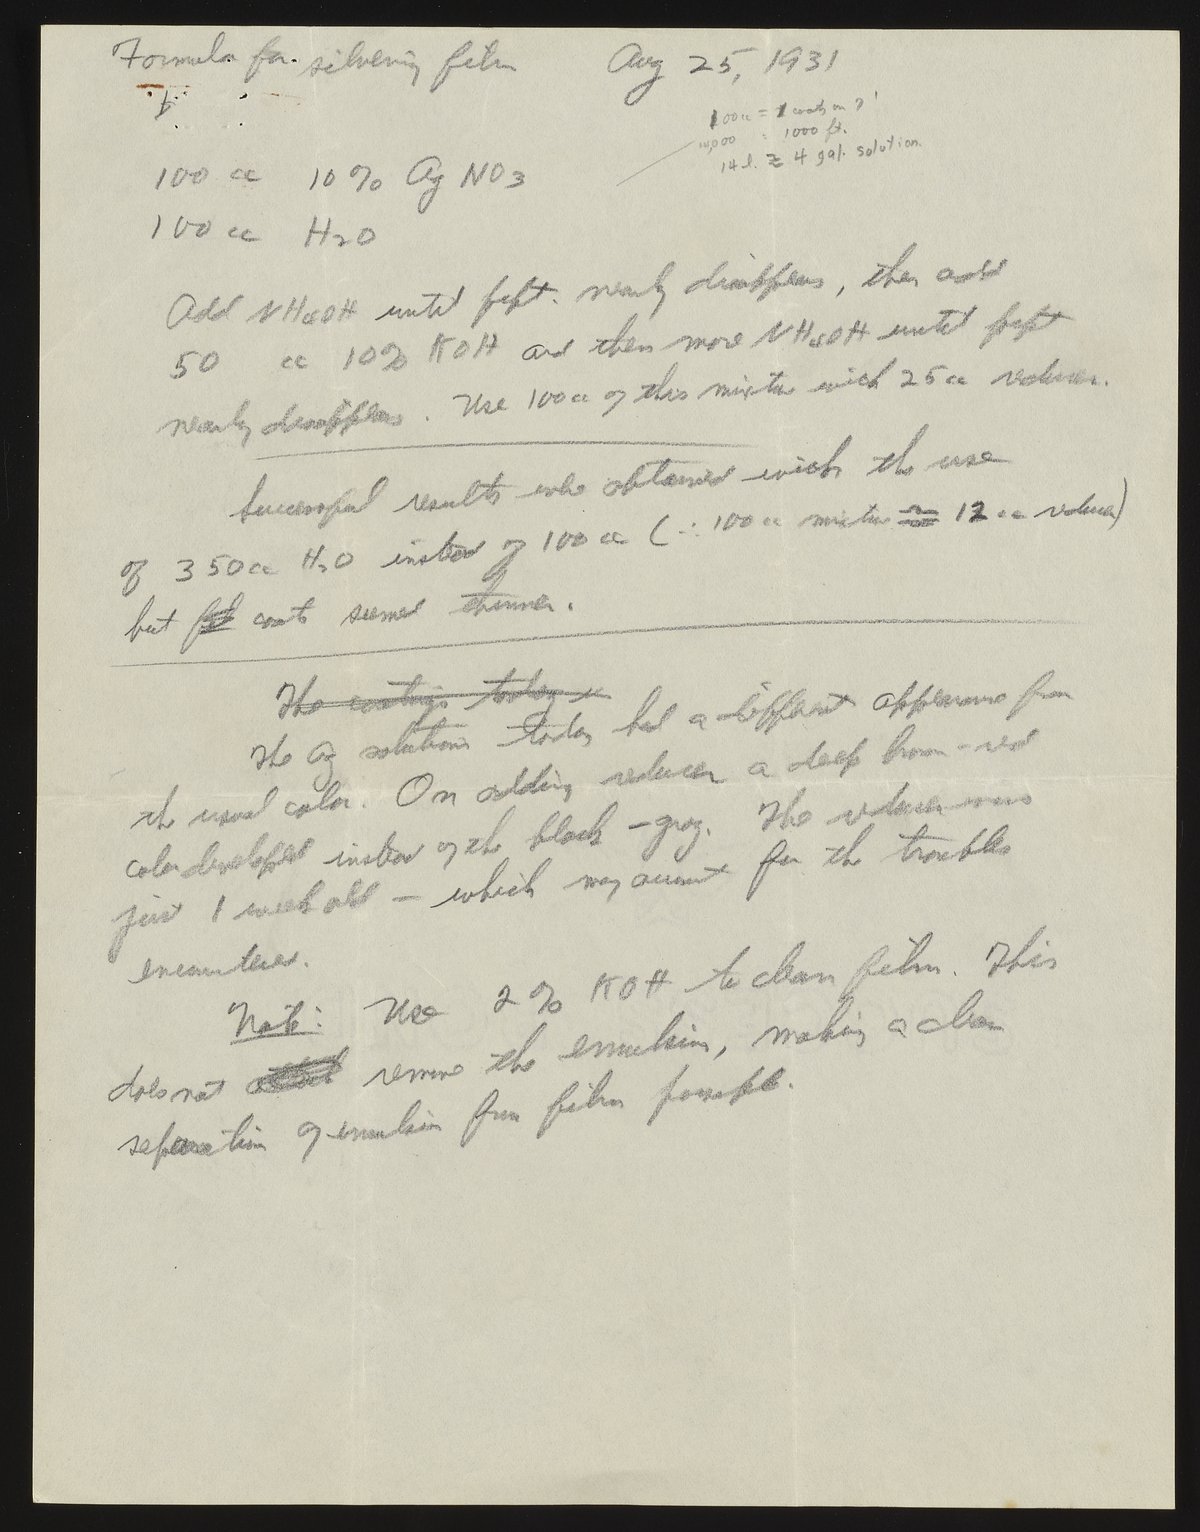 Formula for silvering film Aug 25, 1931
100cc = 1 coats on 7'
14,000 : 1000 ft.
14 l. ≅ 4 gal. solution.
100 cc 10% Ag NO3
100 cc H2O
Add NH4OH until ppt. nearly disappears, then add
50 cc 10% KOH and then more NH4OH until ppt
nearly disappears. Use 100 cc of this mixture with 25 cc reducer.
Successful results were obtained with the use
of 350 cc H2O instead of 100 cc (∴ 100 cc mixture ≅ 12 cc reducer)
but coats seemed thinner.
The coatings today
The Ag solutions today had a different appearance from
the usual color. On adding reducer a deep brown-red
color developed instead of the black-gray. The reducer was
just 1 week old – which may account for the troubles
encountered.
Note: Use 2% KOH to clean film. This
does not remove the emulsion, making a clean
separation of emulsion from film possible.